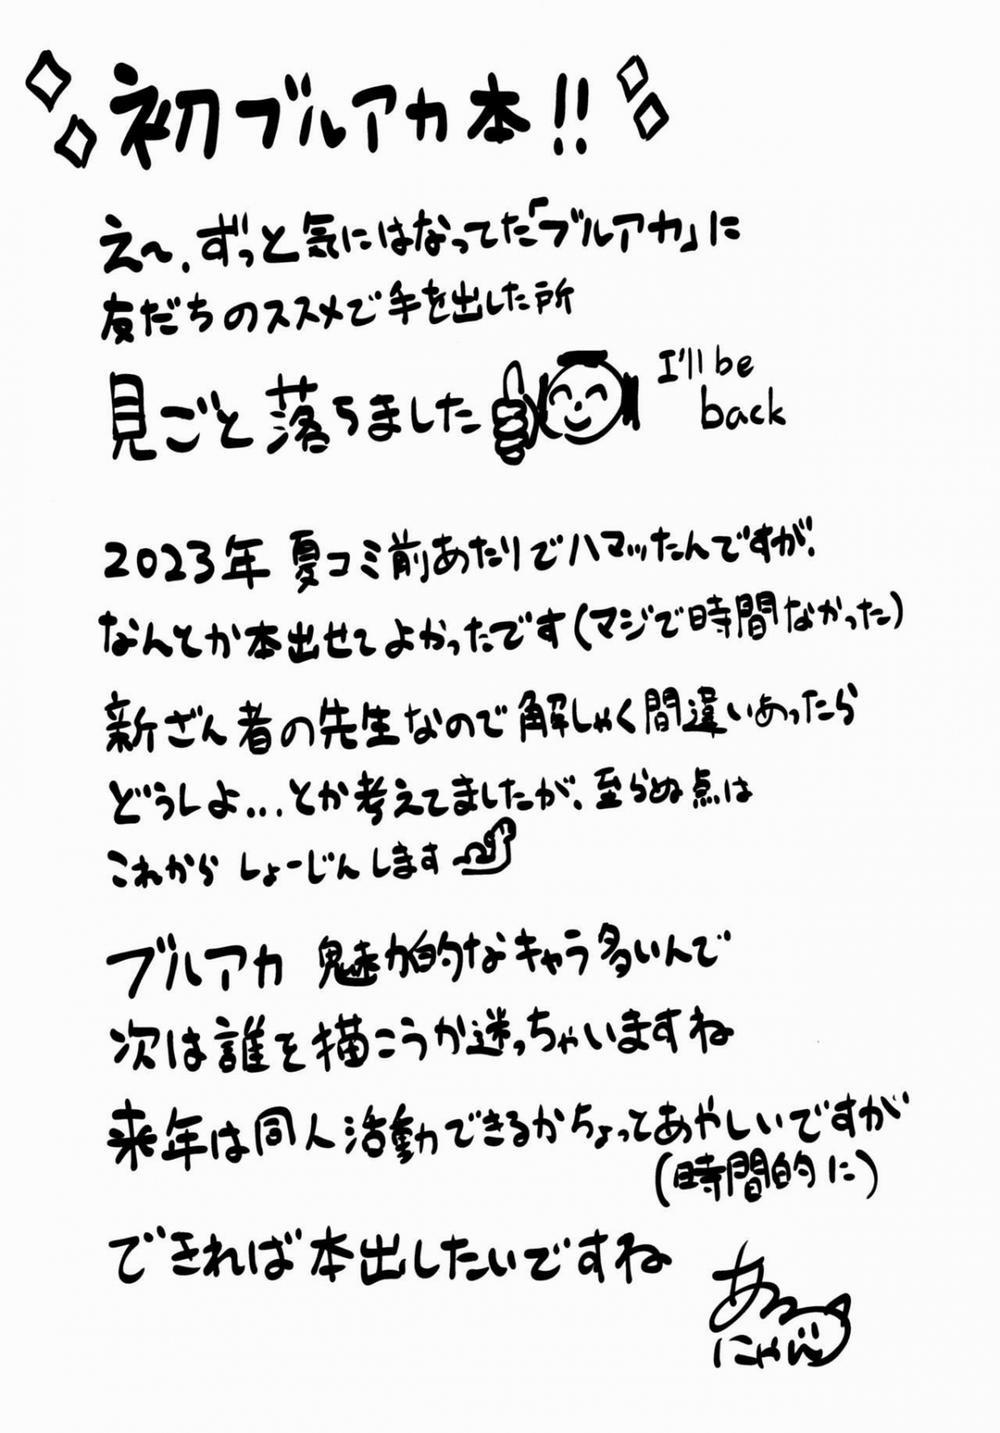 初ブルアカ本!!
え〜、ずっと気にはなってた「ブルアカ」に
友だちのススメで手を出した所
見ごと落ちました
I'll be
back
2023年 夏コミ前あたりでハマッたんですが、
なんとか本出せてよかったです(マジで時間なかった)
新ざん者の先生なので解しゃく間違いあったら
どうしよ...とか考えてましたが、至らぬ点は
これから しょーじんします
ブルアカ 魅力的なキャラ多いんで
次は誰を描こうか迷っちゃいますね
来年は同人活動できるかちょっとあやしいですが
(時間的に)
できれば本出したいですね
にゃん